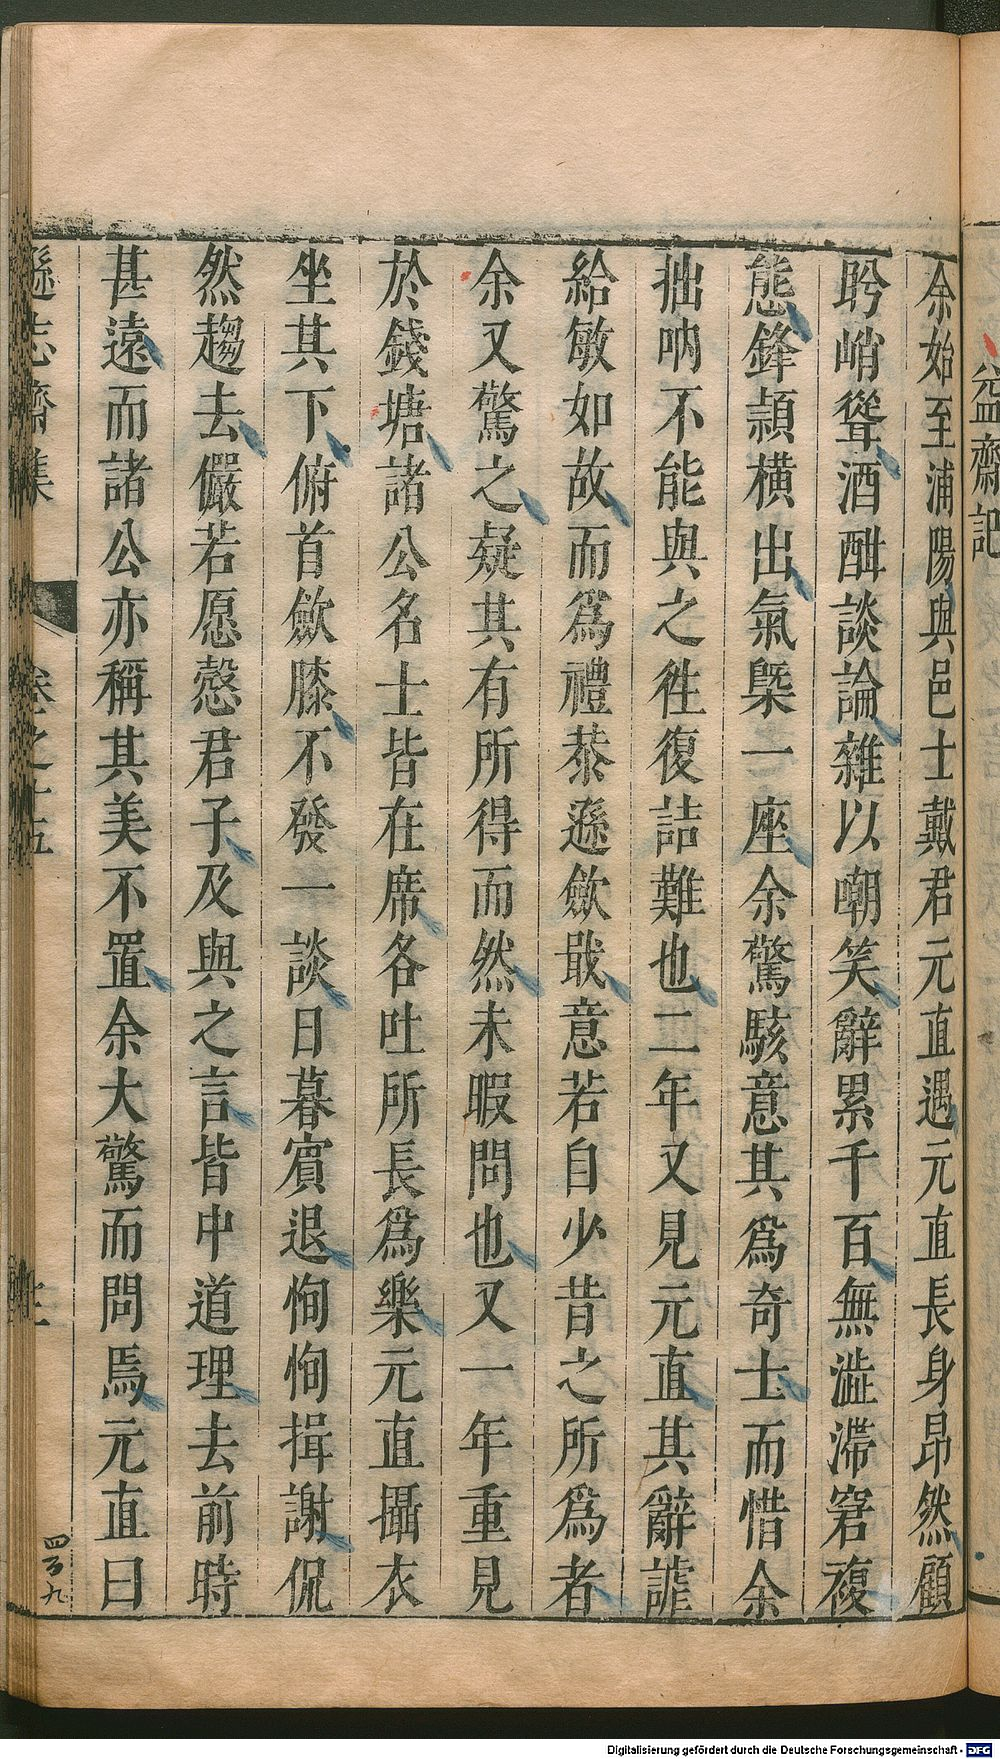 益齋記
余始至浦陽與邑士戴君元直遇元直長身昂然顧
盻峭聳酒酣談論雜以嘲笑辭累千百無澁滯窘複
態鋒頴橫出氣槩一座余驚駭意其爲奇士而惜余
拙吶不能與之徃復詰難也二年又見元直其辭謔
給敏如故而爲禮恭遜歛戢意若自少昔之所爲者
余又驚之疑其有所得而然未暇問也又一年重見
於錢塘諸公名士皆在席各吐所長爲樂元直攝衣
坐其下俯首歛膝不發一談日暮賓退恂恂揖謝侃
然趨去儼若愿慤君子及與之言皆中道理去前時
甚遠而諸公亦稱其美不置余大驚而問焉元直曰
遜志齋集 卷之十五
四百九
Digitalisierung gefördert durch die Deutsche Forschungsgemeinschaft - DFG